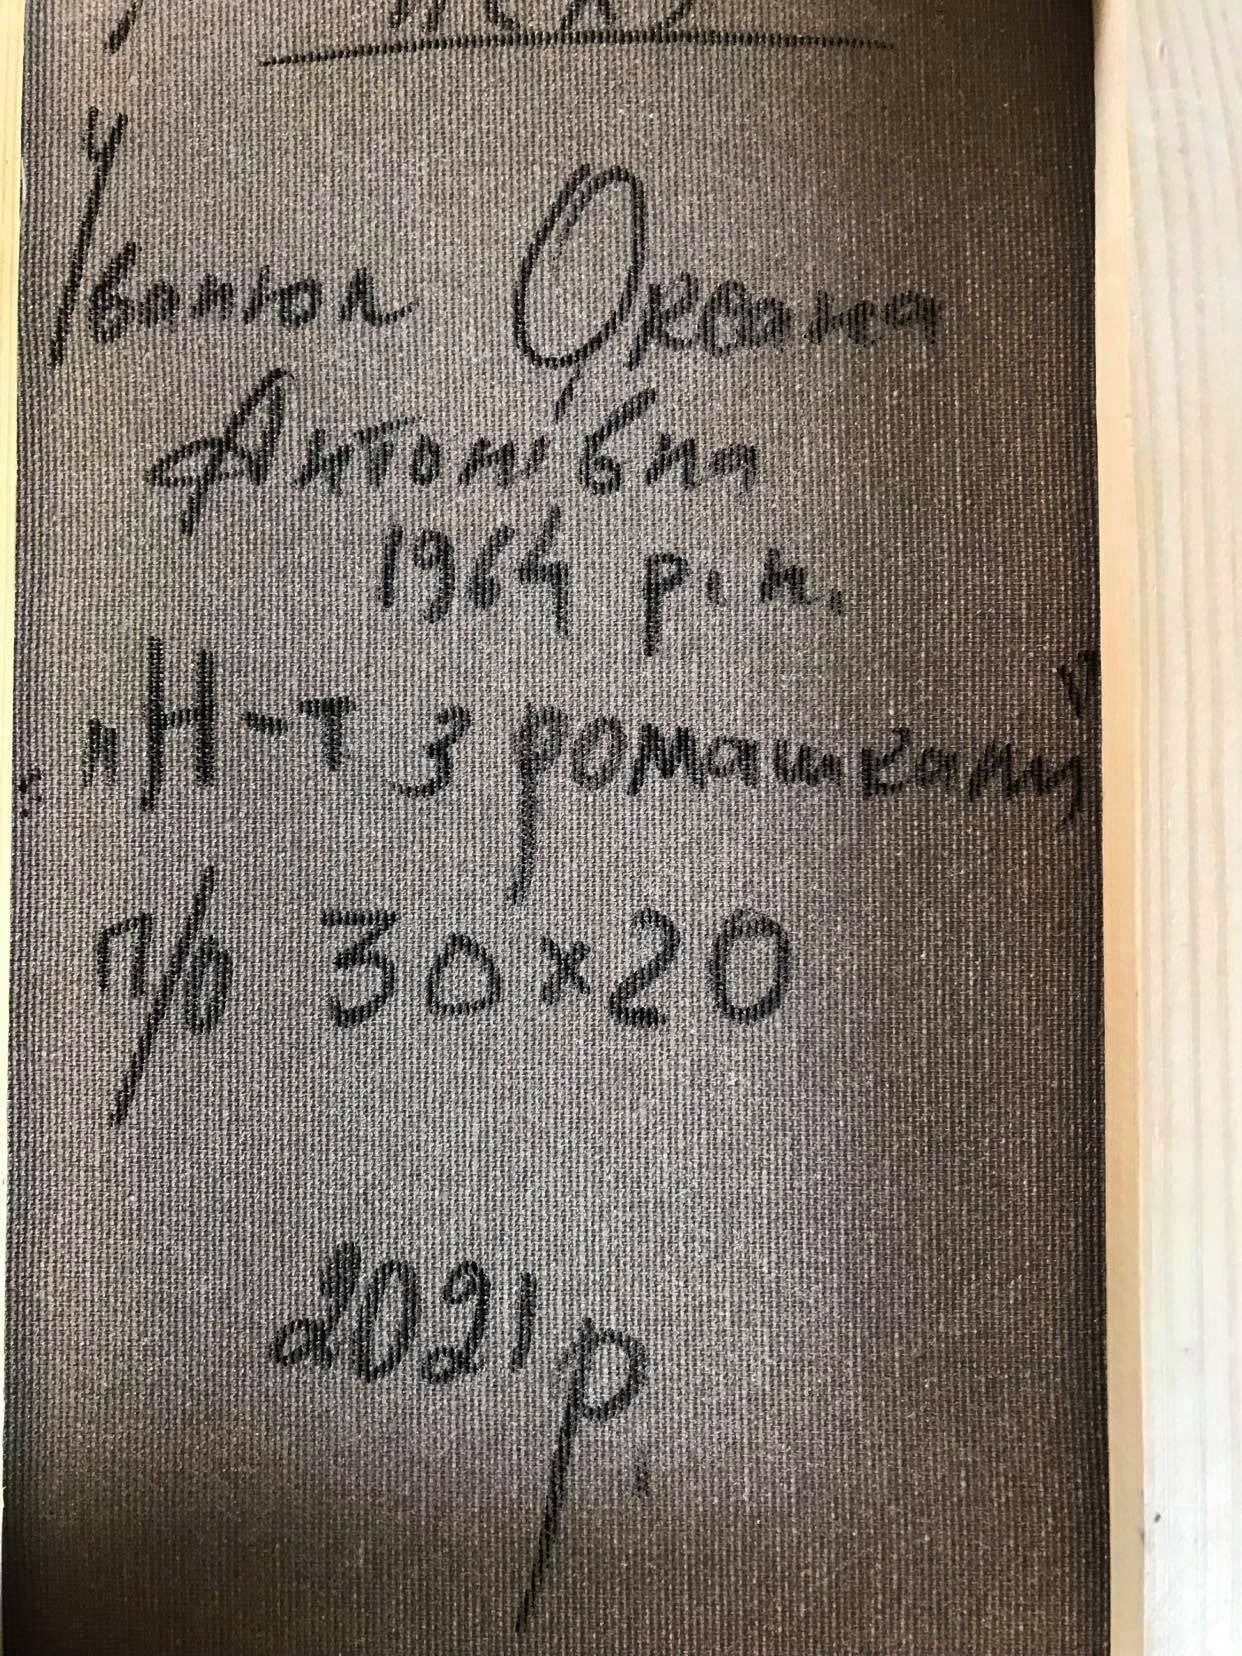 Іванюк Оксана
Антонівна
1964 р.н.
„Н-т з ромашками”
п/о 30х20
2021 р.